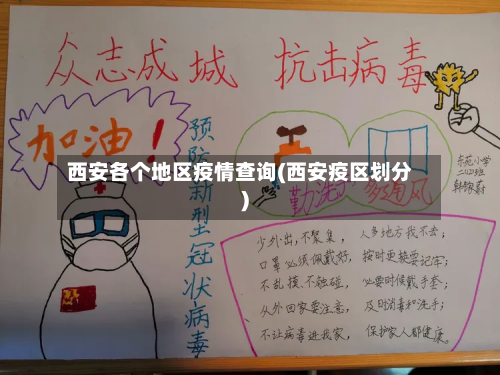 众志成城 抗击病毒
加油！
预防新型冠状病毒
西安各个地区疫情查询(西安疫区划分
)
勤洗手
多通风
东苑小学
二(4)班
少外出,不聚集,
口罩必须佩戴好,
不乱摸、不触碰,
从外回家要注意,
不让病毒进我家,
人多地方我不去;
按时更换要记牢;
必要时候戴手套;
及时消毒和洗手;
保护家人都健康。